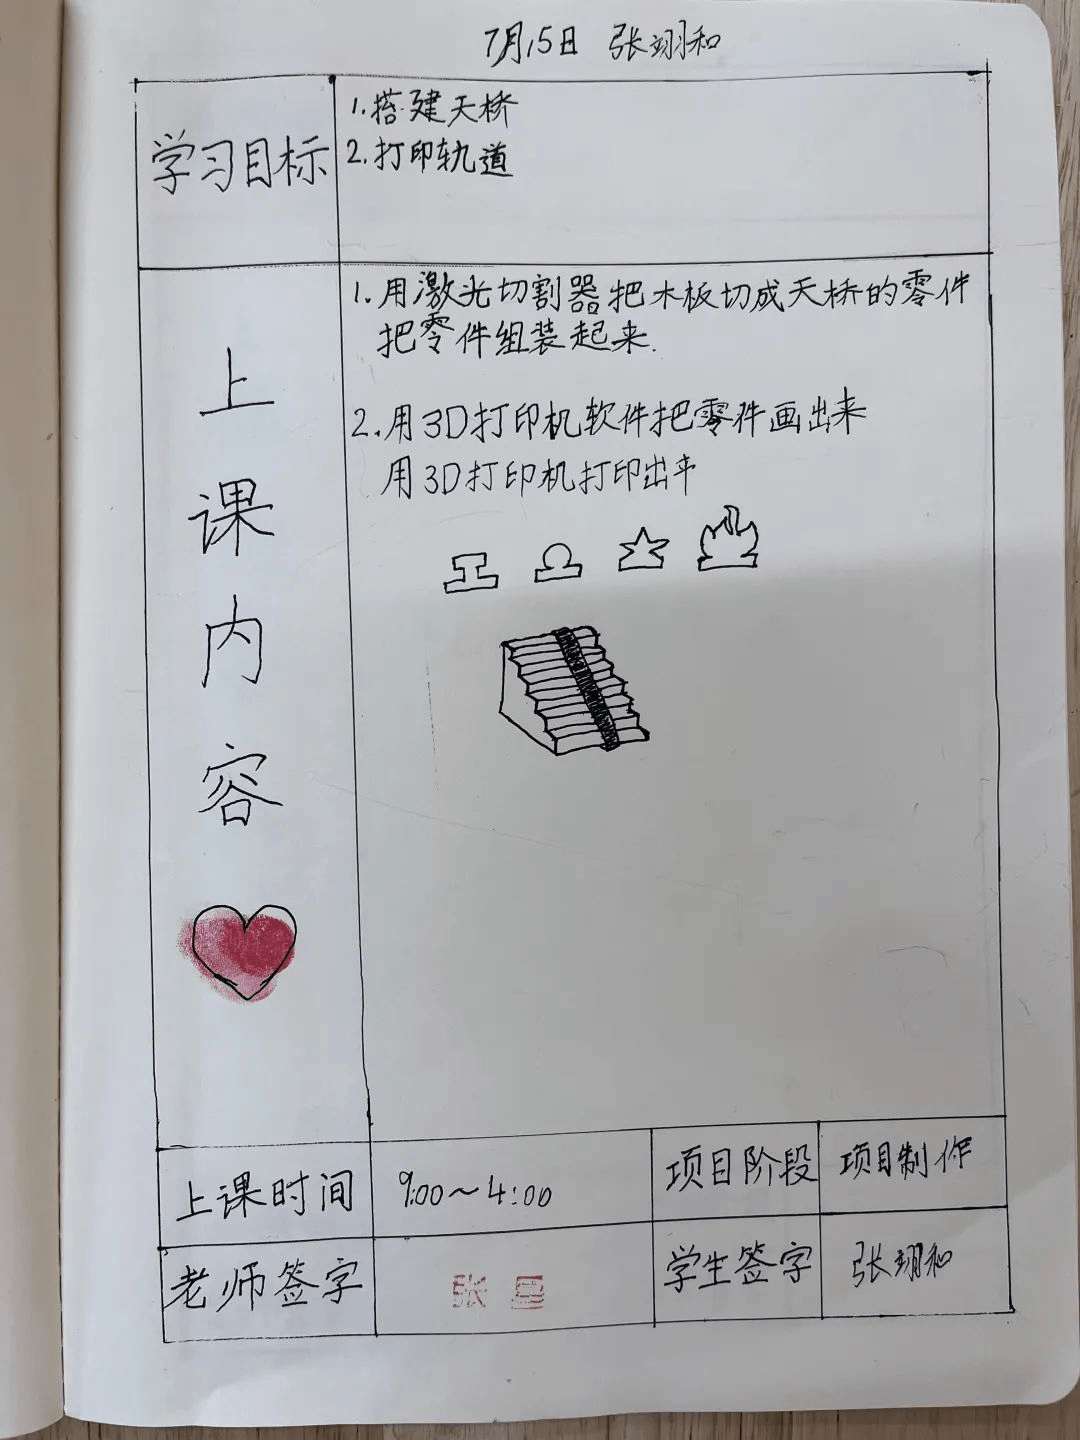 7月15日 张翊和
学习目标
1.搭建天桥
2.打印轨道
上课内容
1.用激光切割器把木板切成天桥的零件
把零件组装起来.
2.用3D打印机软件把零件画出来
用3D打印机打印出来
上课时间 9:00～4:00 项目阶段 项目制作
老师签字 张 星 学生签字 张翊和